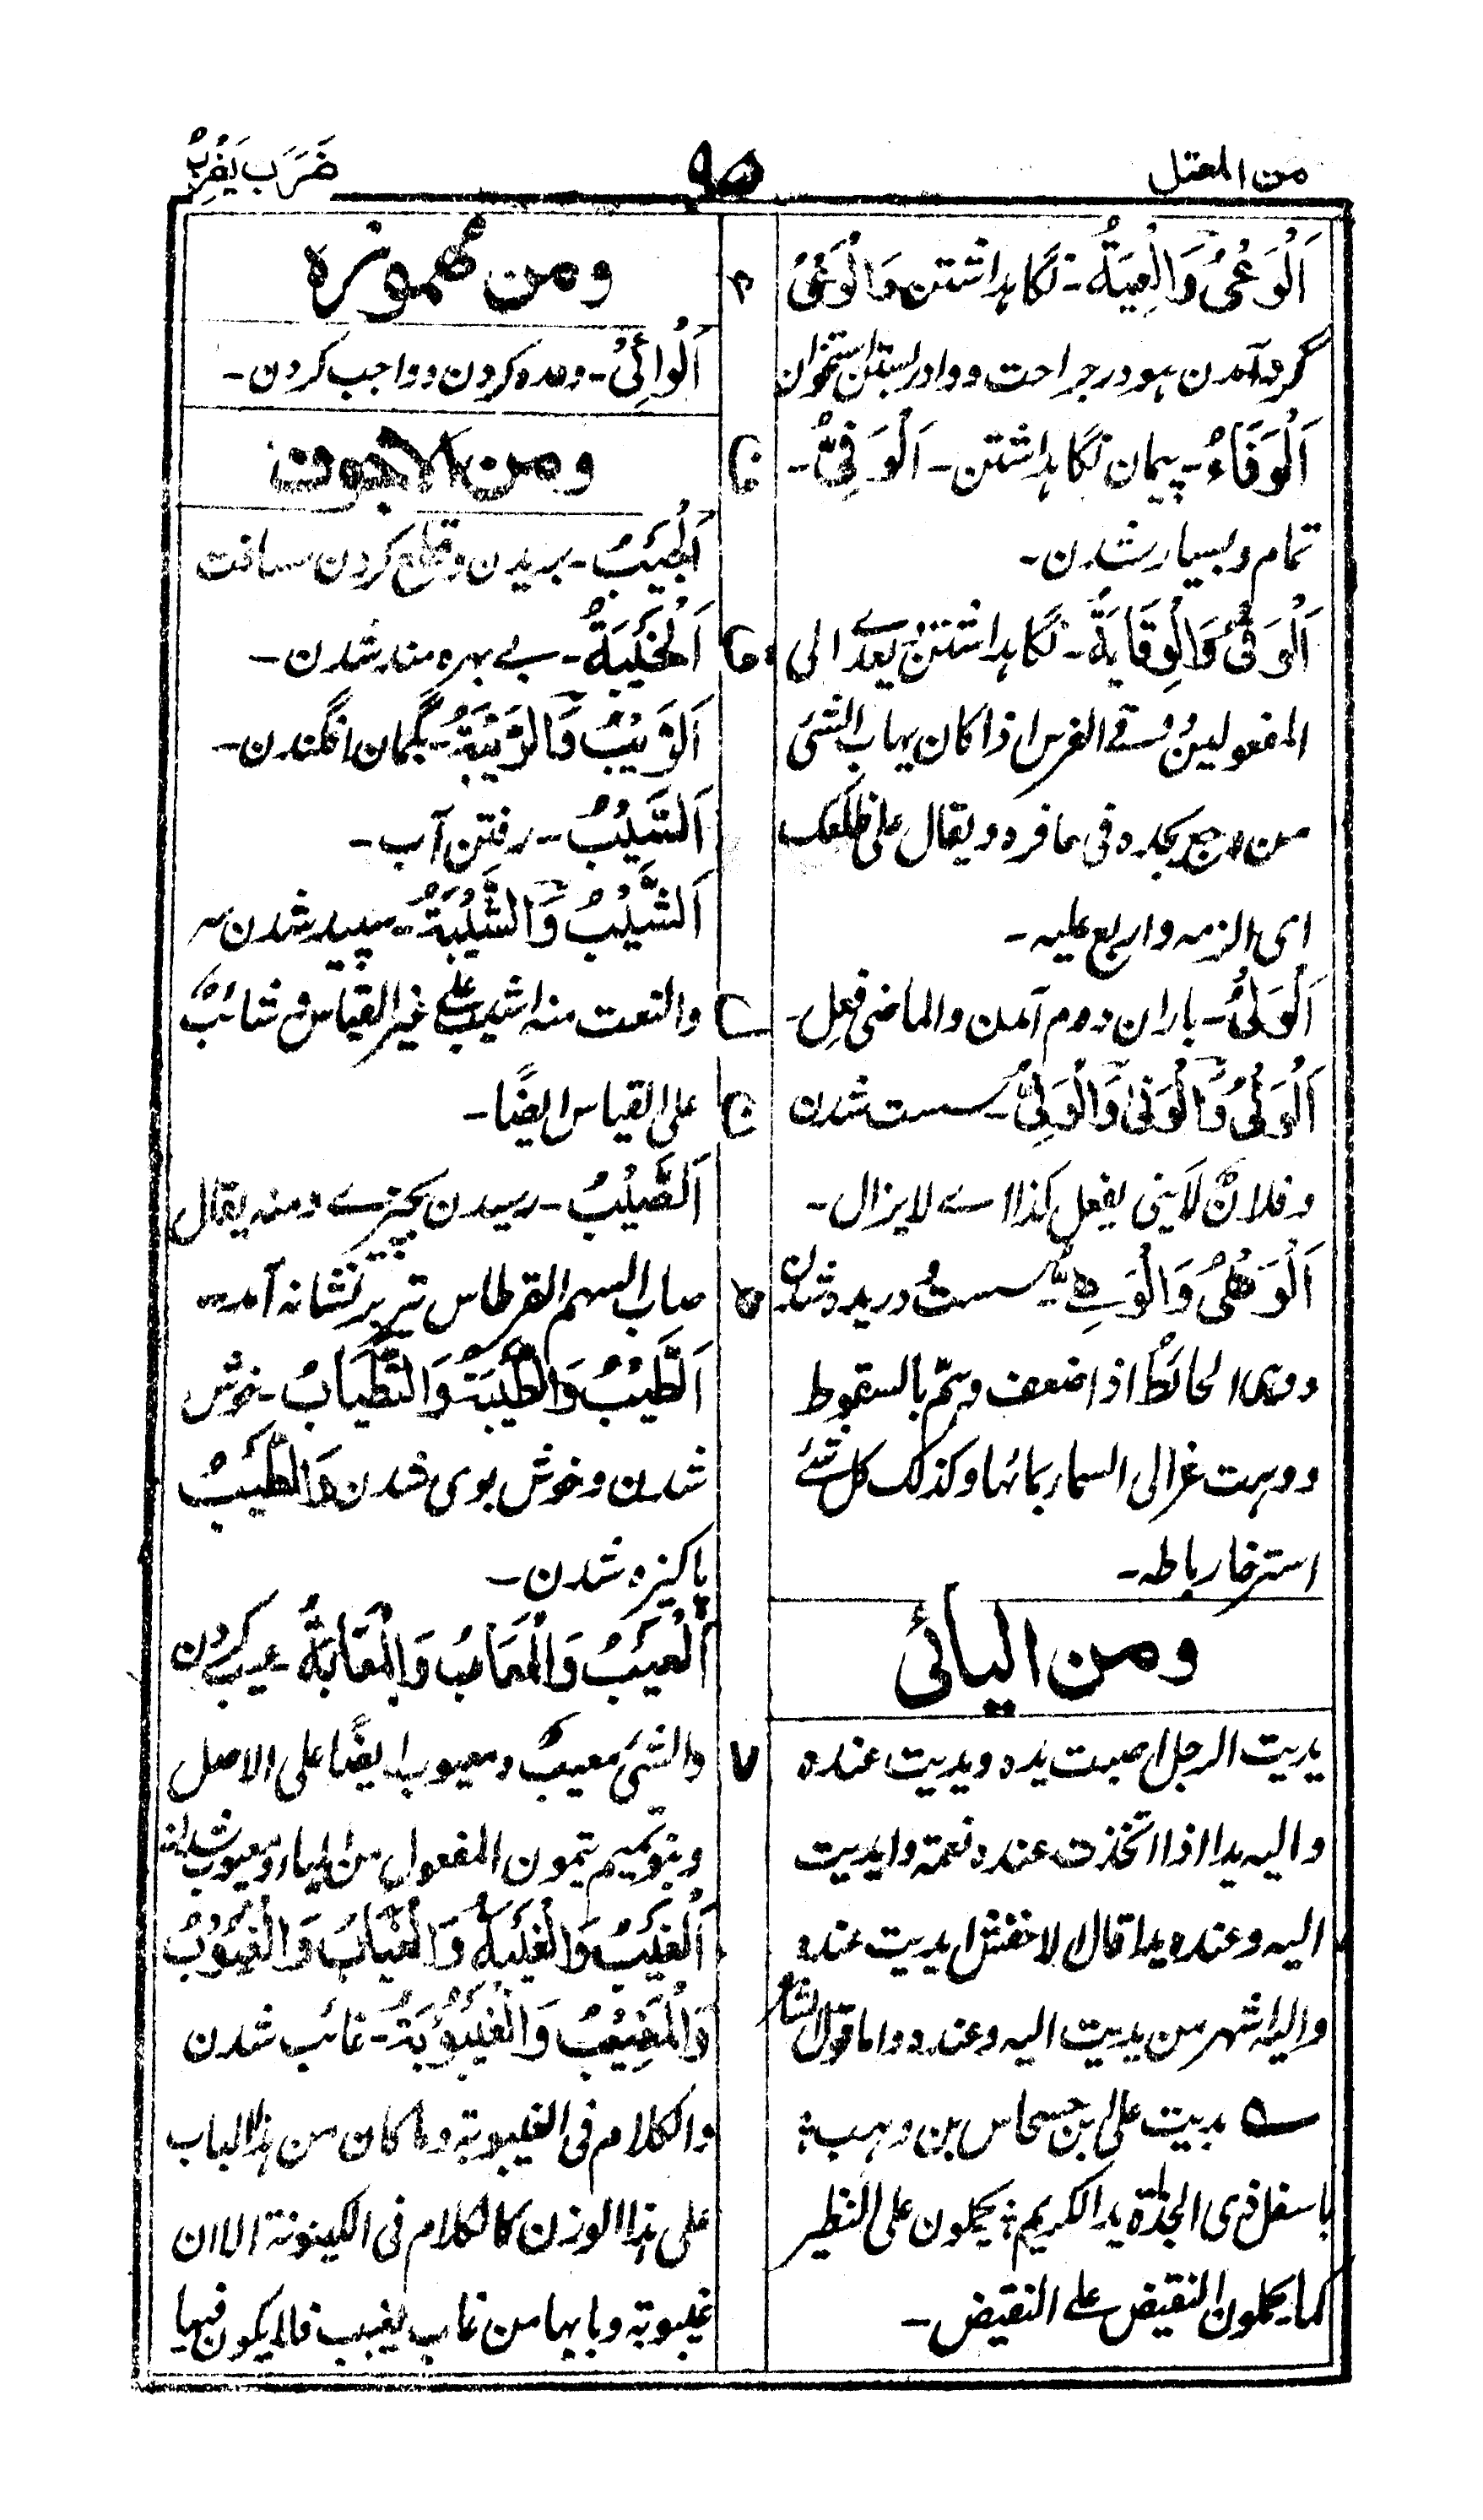 من المعتل
۹۵
ضَرَبَ يَضْرِبُ
اَلْوَعْیُ وَالْعِيَةُ۔ نگاہداشتن وَالْوَعْیُ
گردآمدن ہو در جراحت ووادر بستن استخوان
اَلْوَفَاءُ۔ پیمان نگاہداشتن۔ اَلْوَفِیُّ۔
تمام و بسیار شدن۔
اَلْوَقْیُ وَالْوِقَايَةُ۔ نگاہداشتن یعدے الی
المفعولین الفرس اذا کان یہاب المشی
من وجع یجدہ فی حافرہ ویقال علی ظلعک
ای الزمہ واربع علیہ۔
اَلْوَلْیُ۔ باران دوم آمدن والماضی فعل۔
اَلْوَنْیُ وَالْوَنٰی وَالْوَنِیُّ۔ سست شدن
وفلانٌ لَایَنِی یفعل کذا اے لایزال۔
اَلْوَهْیُ وَالْوَهِیُّ۔ سست ودریدہ شدن
ووہی الحائطُ اذا ضعف وہمّ بالسقوط
ووہت عزالی السمار بمائہا وکذلک کل شئے
استرخار باطہ۔
ومن الیائی
یدیت الرجل اصبت یدہ ویدیت عندہ
والیہ یدا اذا اتخذت عندہ نعمۃ وایدیت
الیہ وعندہ یدا قال الاخفش ایدیت عندہ
والیہ اشہر من یدیت الیہ وعندہ واما قول الشاعر
ے یدیت علی بن حسحاس بن وہب ؛
باسفل ذی الجذاۃ ید الکریم ؛ یحملون علی النظیر
کما یحملون النقیض علے النقیض۔
۴
ف
ق
ل
ن
ہ
۷
ومن مهموزہ
اَلْوَأْیُ۔ وعدہ کردن وواجب کردن۔
ومن الاجوف
اَلْجَيْبُ۔ بریدن وقطع کردن مسافت
اَلْخَيْبَةُ۔ بے بہرہ مند شدن۔
اَلرَّيْبُ وَالرِّيْبَةُ۔ بگمان افگندن۔
اَلسَّيْبُ۔ رفتن آب۔
اَلشَّيْبُ وَالشَّيْبَةُ۔ سپید شدن سر
والنعت منہ اشیب علے غیر القیاس وشائبٌ
علی القیاس ایضًا۔
اَلصَّيْبُ۔ رسیدن بچیزے ومنہ یقال
صاب السہم القرطاس تیر بر نشانہ آمد۔
اَلطِّيْبُ وَالطِّيْبَةُ وَالتَّطْيَابُ۔ خوش
شدن وخوش بوی شدن وَالطِّيْبُ
پاکیزہ شدن۔
اَلْعَيْبُ وَالْمَعَابُ وَالْمَعَابَةُ۔ عیب کردن
والشیٔ معیبٌ ومعیوب ایضًا علی الاصل
وبنو تمیم یتمون المفعول من الیاء
اَلْغَيْبُ وَالْغَيْبَةُ وَالْغِيَابُ وَالْغُيُوْبُ
وَالْمَغِيْبُ وَالْغَيْبُوْبَةُ۔ غائب شدن
والکلام فی الغیبوبۃ وما کان من ہذا الباب
علی ہذا الوزن کالکلام فی الکینونۃ الا ان
غیبوبۃ وبابہا من غاب یغیب فلا یکون فیہا